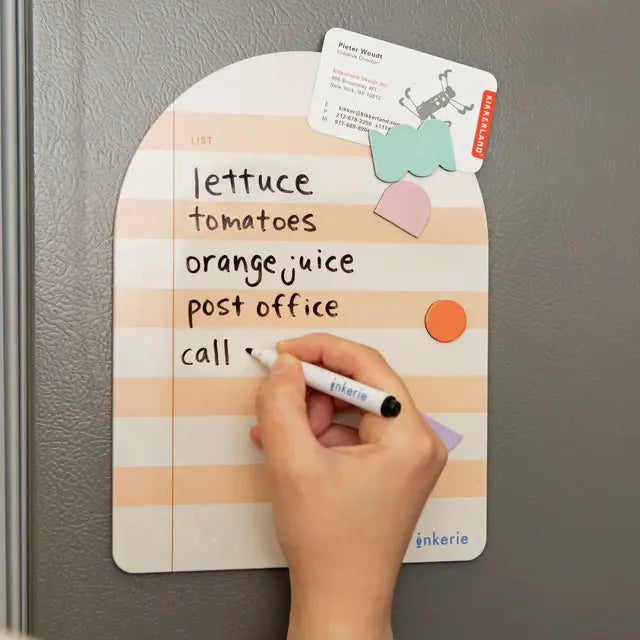 Pieter Woudt
Creative Director
Kikkerland Design Inc
New York, NY 10012
E kikker@kikkerland.com
P 212-678-2250
M
KIKKERLAND
LIST
lettuce
tomatoes
orange juice
post office
call
inkerie
inkerie